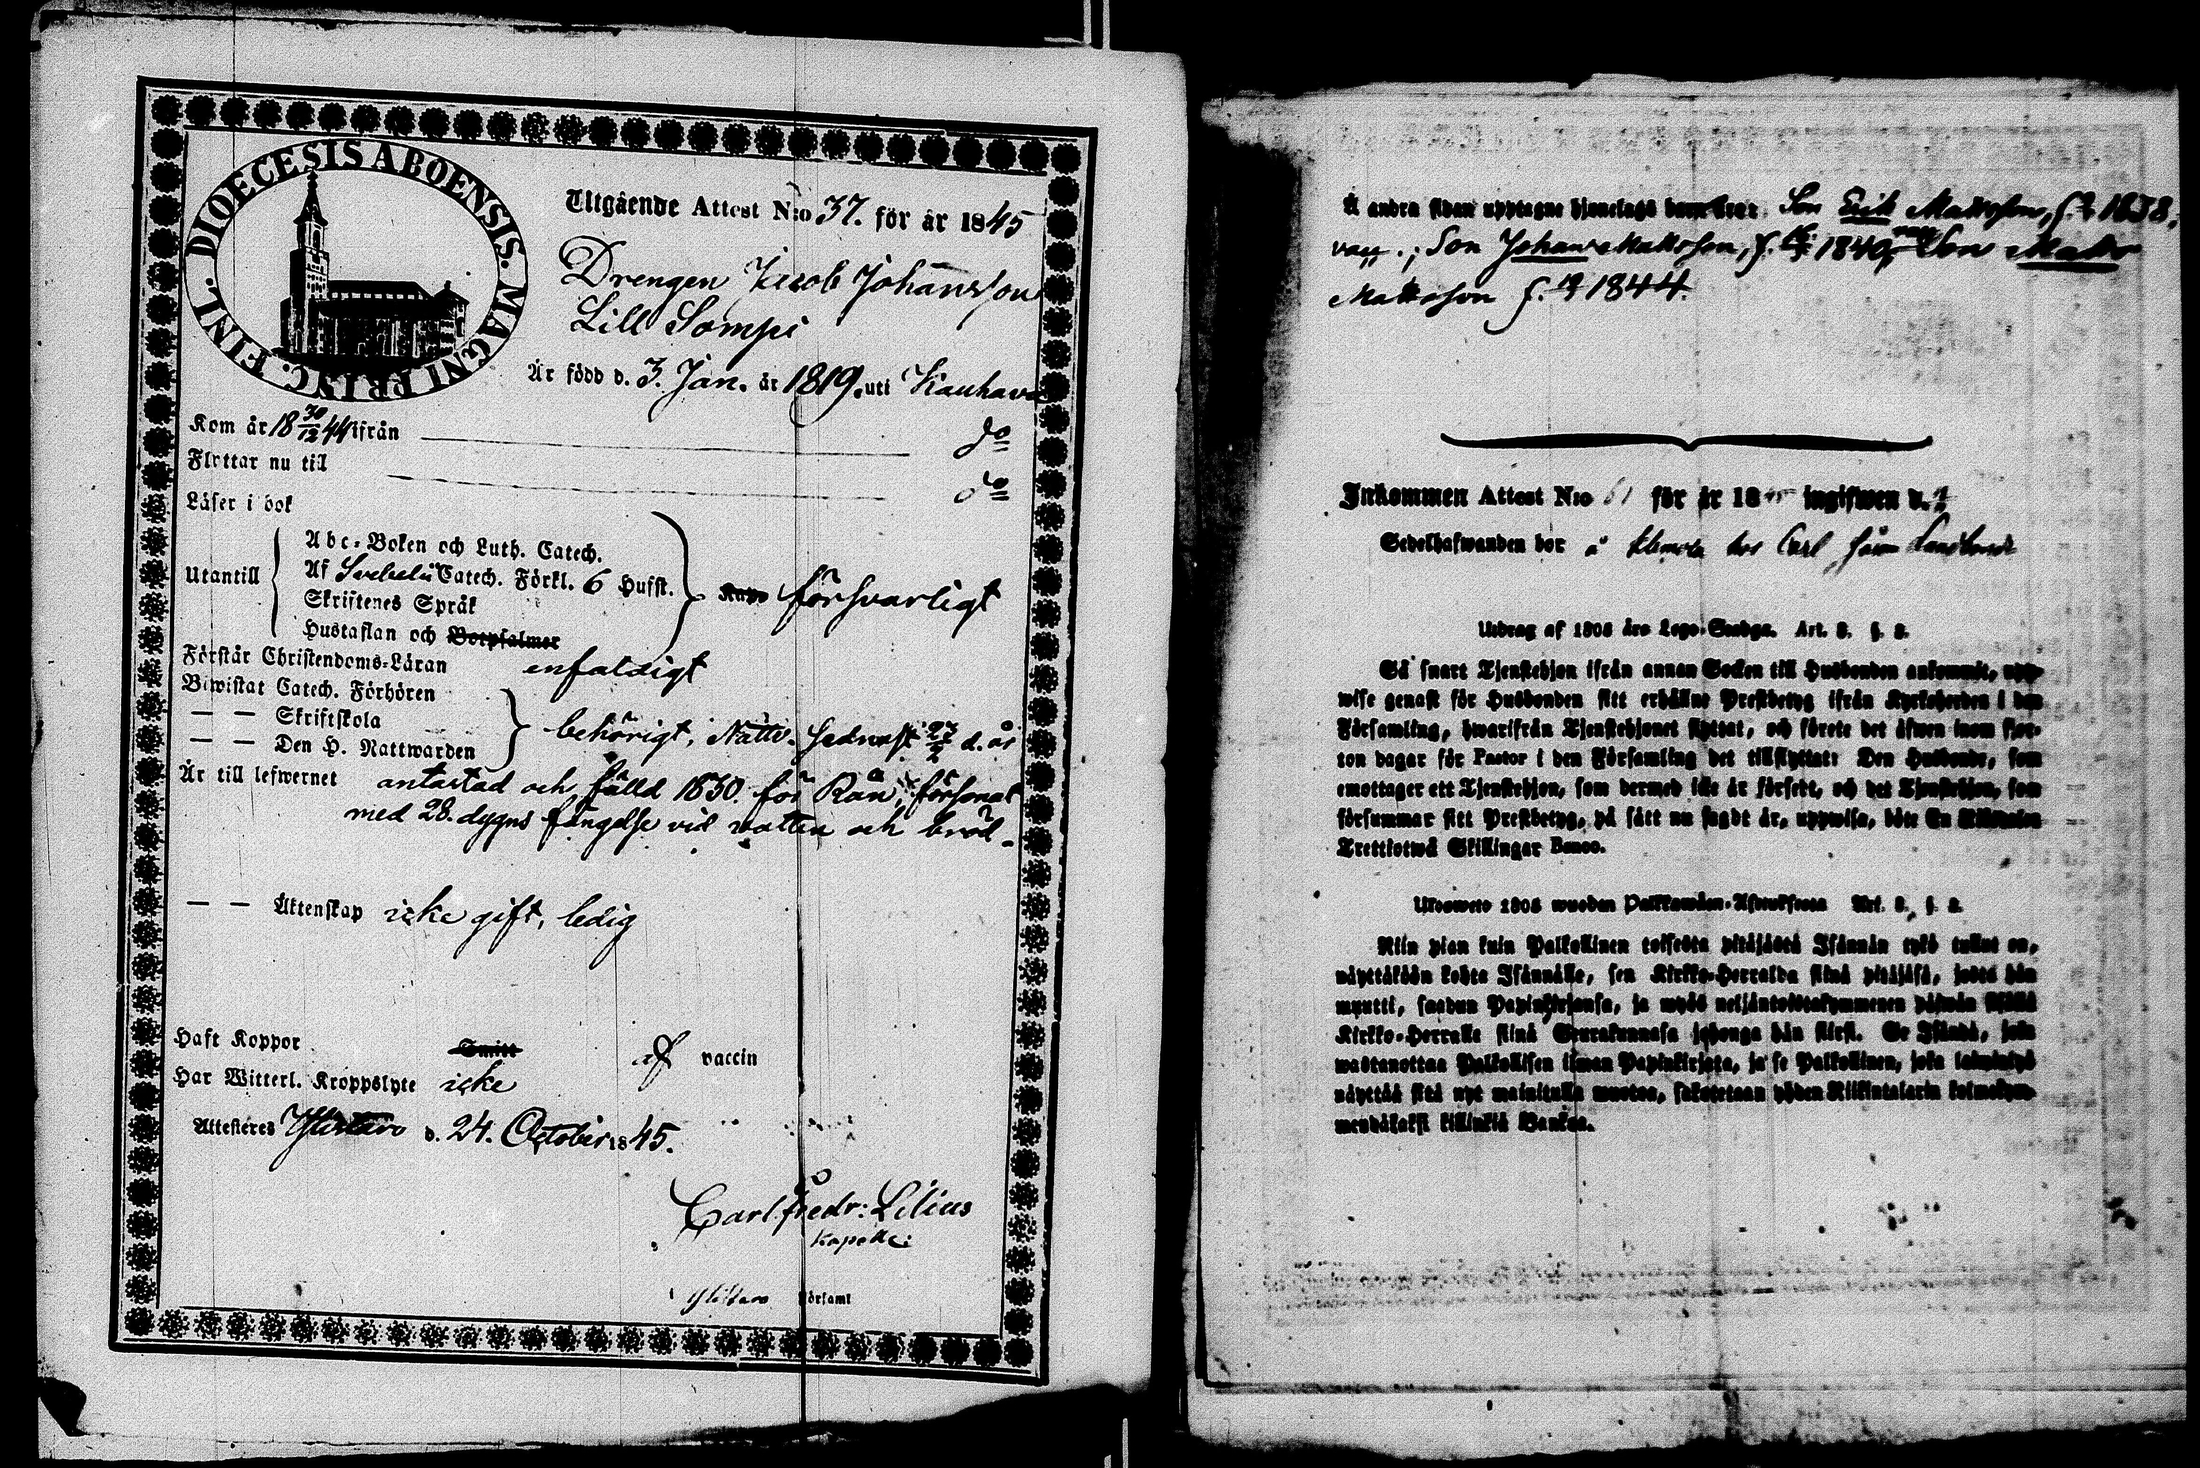 DIOECESIS ABOENSIS. MAGNI PRINC. FINL.
Utgående Attest N:o 37. för år 1845
Drengen Jacob Johansson
Lill Sompi
Är född d. 3. Jan. år 1819. uti Kauhava
Kom år 18 30/12 44 ifrån do
Flyttar nu till do
Läser i bok
Utantill
Abc-Boken och Luth. Catech.
Af Svebelii Catech. Förkl. 6 Hufst.
Skriftenes Språk
Hustaflan och Botpsalmer
försvarligt
Förstår Christendoms-Läran enfaldigt
Biwistat Catech. Förhören
— — Skriftskola
— — Den H. Nattwarden
behörigt, Nattv. sednast 27/7 d. år
Är till lefwernet antastad och fälld 1830. för Rån, försonat
med 28. dygns fängelse vid vatten och bröd.
— — Äktenskap icke gift, ledig
Haft Koppor Smitt af vaccin
Har Witterl. Kroppslyte icke
Attesteres Ylistaro d. 24. October 1845.
Carl Fredr: Lilius
Kapell:
Ylistaro Församl
Å andra sidan upptagne hjonelags barn äro: Son Erik Mattsson, f. 1838,
vacc.; Son Johan Mattsson, f. 1840, vacc. Son Matts
Mattsson f. 1844.
Inkommen Attest N:o 61 för år 18 ingifwen d.
Sedelhafwanden bor å Carl
Utdrag af 1805 års Lego-Stadga. Art. 8. §. 2.
Så snart Tjenstehjon ifrån annan Socken till Husbonden ankommit, upp-
wise genast för Husbonden sitt erhållne Prestbetyg ifrån Kyrkoherden i den
Församling, hwarifrån Tjenstehjonet flyttat, och förete det äfwen inom fjor-
ton dagar för Pastor i den Församling det tillflyttat: Den Husbonde, som
emottager ett Tjenstehjon, som dermed icke är försedt, och det Tjenstehjon, som
försummar sitt Prestbetyg, på sätt nu sagdt är, uppwisa, böte En Riksdaler
Trettiotwå Skillingar Banco.
Ulosweto 1805 wuoden Palkkawäen-Asetuksesta Art. 8. §. 2.
Niin pian kuin Palkollinen toisesta pitäjästä Isännän tykö tullut on,
näyttäköön kohta Isännälle, sen Kirkko-Herralda siinä pitäjäsä, josta hän
muutti, saadun Papinkirjansa, ja myös neljäntoistakymmenen päiwän sisällä
Kirkko-Herralle siinä Seurakunnasa johonga hän siirsi. Se Isändä, joka
wastanottaa Palkollisen ilman Papinkirjata, ja se Palkollinen, joka laiminlyö
näyttää sitä nyt mainitulla muotoa, sakotetaan yhden Riikintalarin kolmekym-
mendäkaksi killinkiä Bankoa.